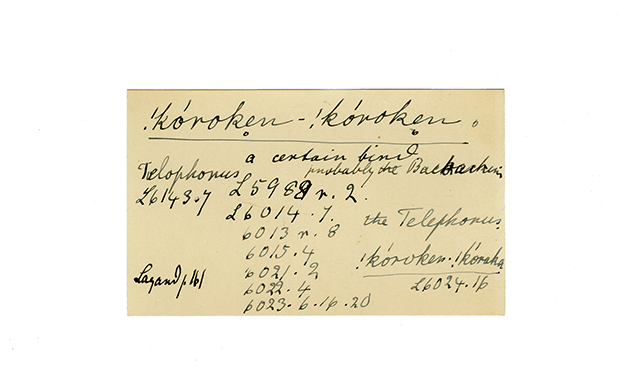 !kóroken - !kóroken.
a certain bird
Telophonus probably the
L6143.7 L5989 r. 2.
L6014.7. the Telephonus.
6013 r. 8
6015.4 !kóroken-!kóroka
6021.2 L6024.16
p. 161
6022.4
6023.6.16.20